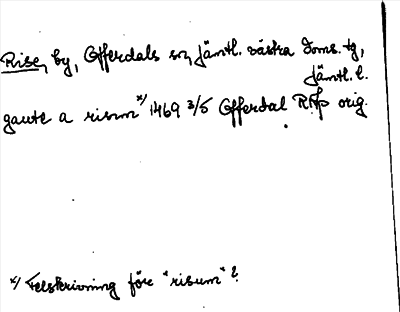 Rise, by, Offerdals sn, Jämtl. västra doms. tg,
Jämtl. l.
gaute a risum x) 1469 3/5 Offerdal RAp orig.
x) Felskrivning före "risum"?